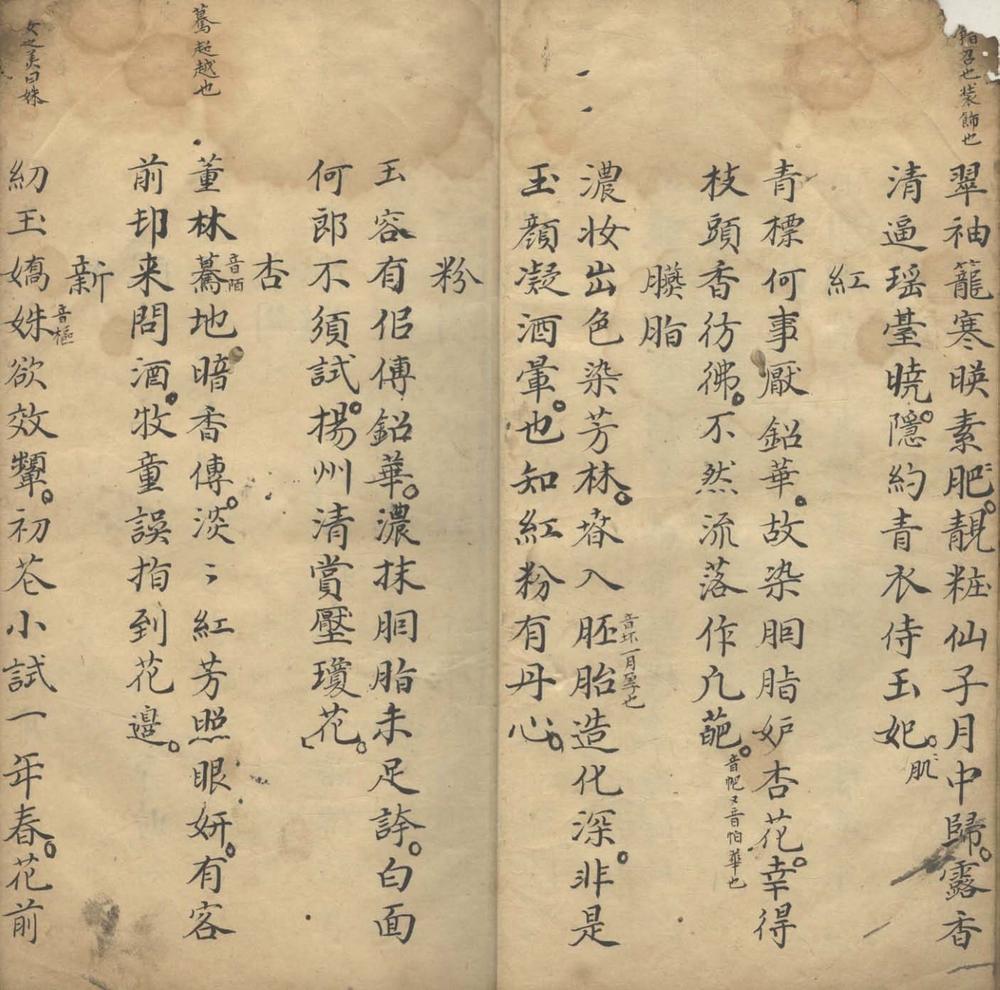 靘召也裝飾也
翠袖籠寒暎素肥靚粧仙子月中歸露香
清逼瑶臺曉隱約青衣侍玉妃
肌
紅
青標何事厭鉛華故染胭脂妒杏花幸得
枝頭香彷彿不然流落作凢葩
音帊又音怕華也
臙脂
濃妆出色染芳林㫪入胚胎造化深非是
音坏一月孕也
玉顔凝酒暈也知紅粉有丹心
粉
玉容有侣傅鉛華濃抹胭脂未足誇白面
何郎不須試揚州清賞壓瓊花
杏
驀超越也
董林驀地暗香傳淡〻紅芳照眼妍有客
音陌
前邨来問酒牧童誤指到花邊
新
女之美曰姝
紉玉嬌姝欲效顰初花小試一年春花前
音樞